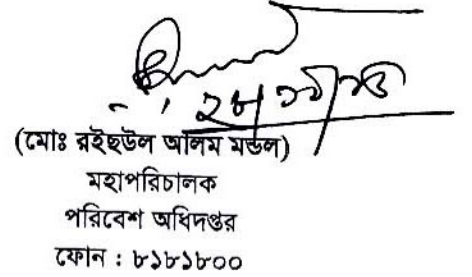 (মোঃ রইছউল আলম মন্ডল)
মহাপরিচালক
পরিবেশ অধিদপ্তর
ফোন : ৮১৮১৮০০